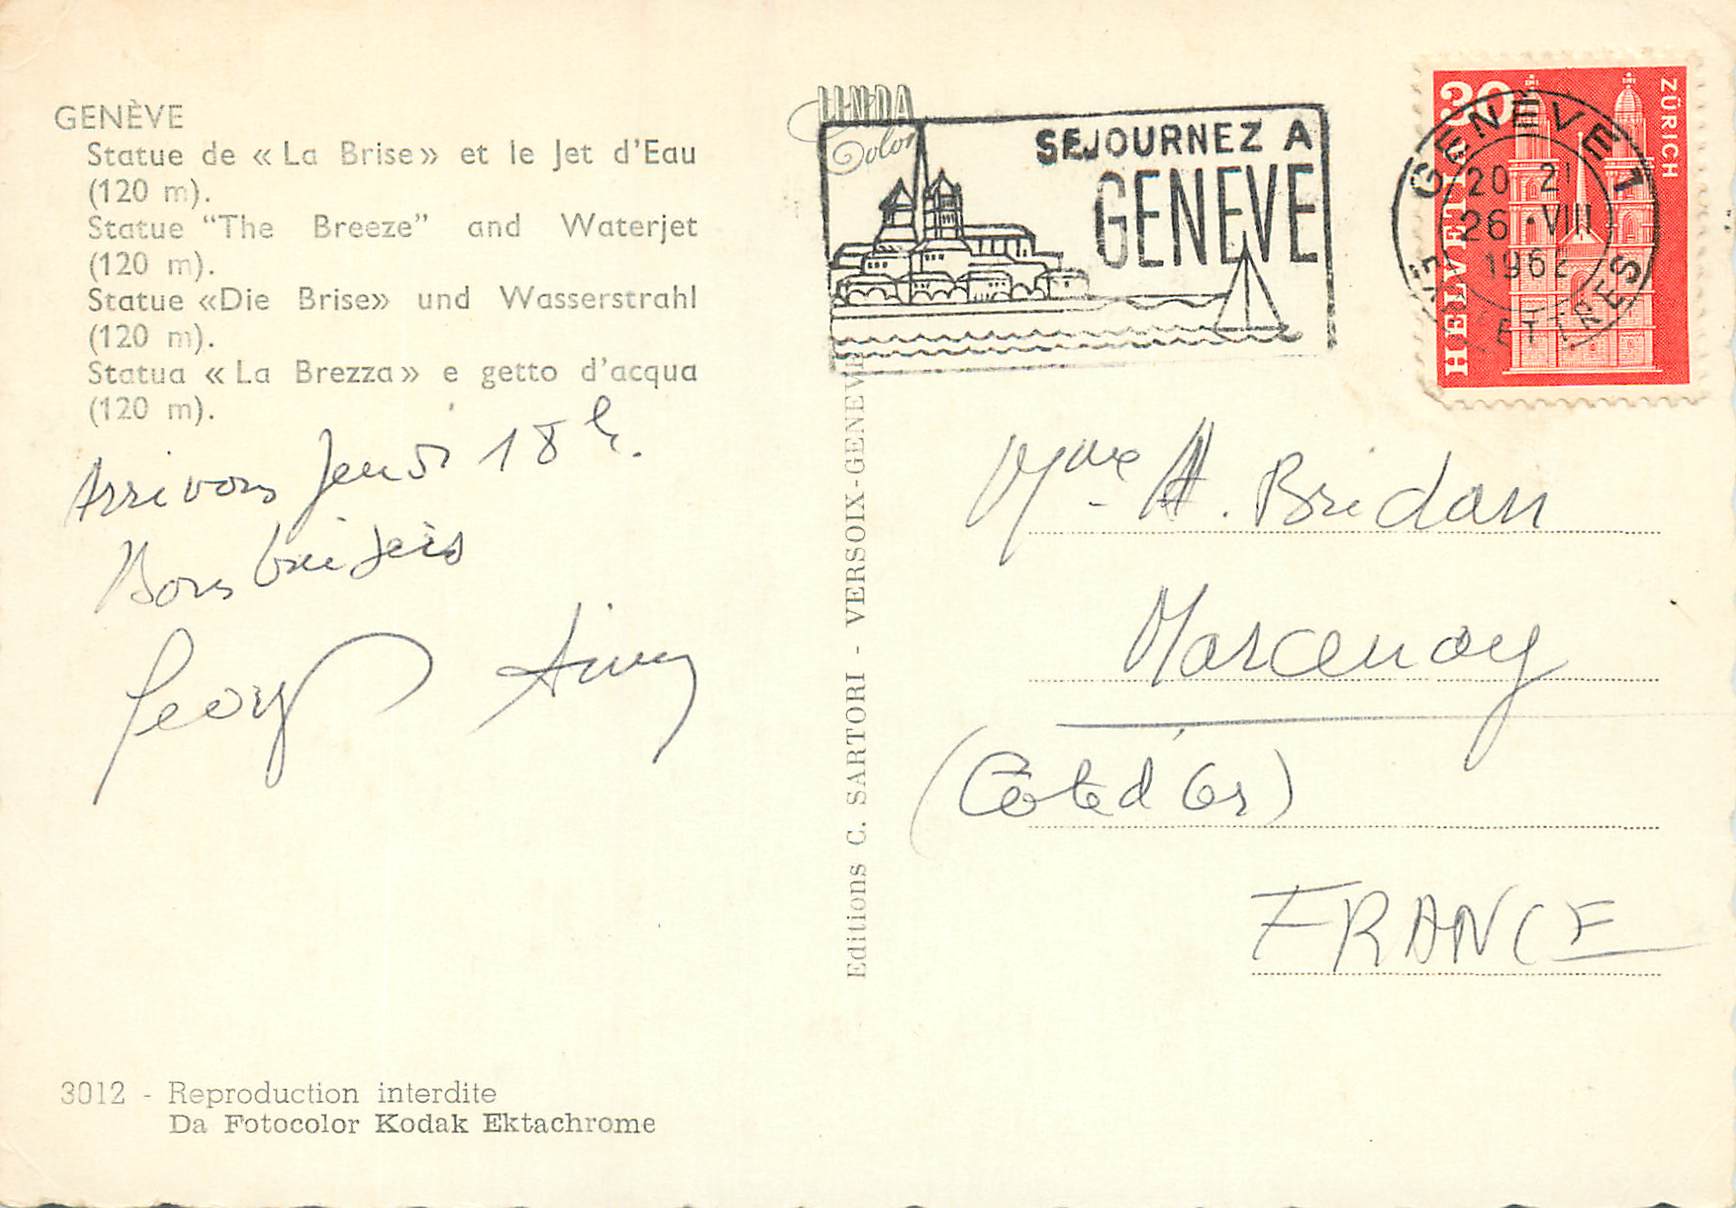 GENÈVE
Statue de « La Brise» et le Jet d'Eau
(120 m).
Statue “The Breeze” and Waterjet
(120 m).
Statue «Die Brise» und Wasserstrahl
(120 m).
Statua « La Brezza» e getto d'acqua
(120 m).
Arrivons Jeudi 18 h.
Bons baisers
Georg
3012 - Reproduction interdite
Da Fotocolor Kodak Ektachrome
Editions C. SARTORI - VERSOIX-GENEVE
LINDA
Color
SEJOURNEZ A
GENEVE
30
HELVETIA
ZÜRICH
GENÈVE 1
20 21
26 • VIII
1962
LETTRES
Mme A. Bridan
Marcenay
(Côte d'Or)
FRANCE